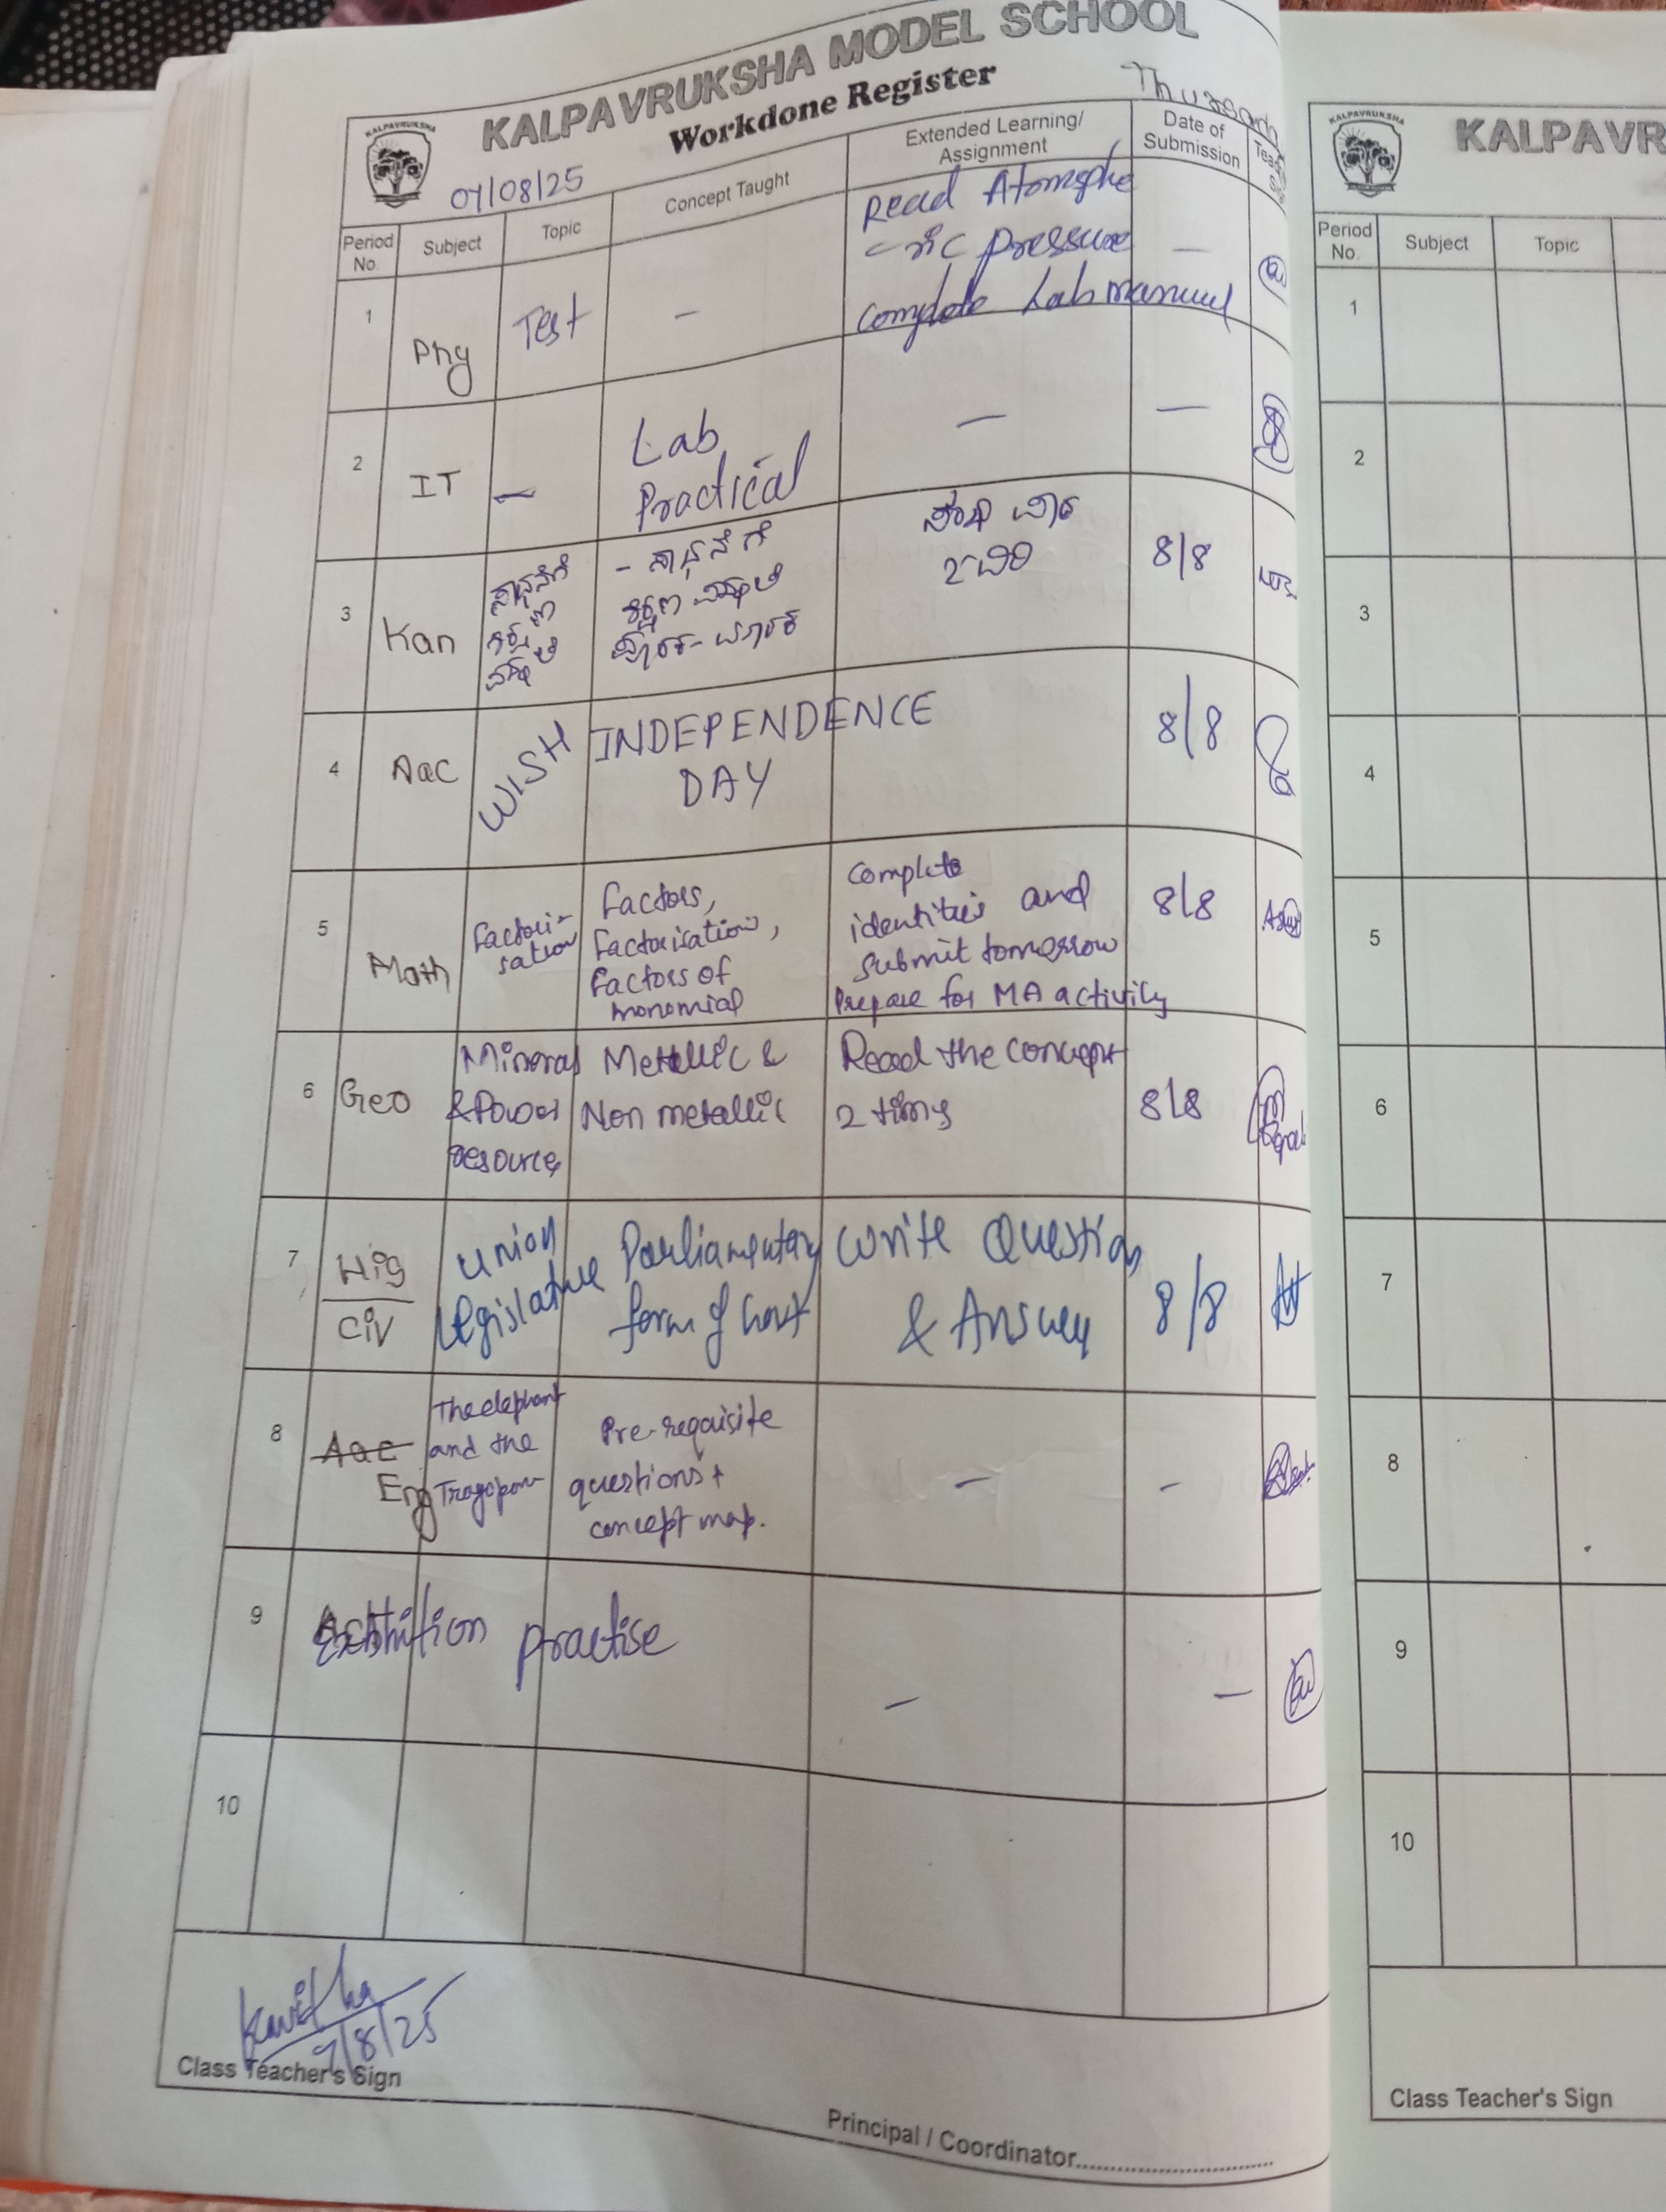 KALPAVRUKSHA MODEL SCHOOL
Workdone Register
Thursday
KALPAVRUKSHA
07/08/25
Period No.
Subject
Topic
Concept Taught
Extended Learning/ Assignment
Date of Submission
1
Phy
Test
–
Read Atomsphe
-ric pressure
complete Lab manual
–
2
IT
–
Lab
Practical
–
–
3
Kan
8/8
4
Aac
WISH
INDEPENDENCE
DAY
8/8
5
Math
Factori-
sation
Factors,
Factorisation,
Factors of
monomial
Complete
identities and
submit tomorrow
Prepare for MA activity
8/8
6
Geo
Mineral
&Power
resource
Metallic &
Non metallic
Read the concept
2 times
8/8
7
His
Civ
Union
Legislative
Parliamentary
form of Govt
Write Question
& Answer
8/8
8
Aac
Eng
The elephant
and the
Tragopan
Pre-requisite
questions +
concept map.
–
–
9
practise
–
–
10
Kavitha
7/8/25
Class Teacher's Sign
Principal / Coordinator
KALPAVRUKSHA
KALPAVR
Period No.
Subject
Topic
1
2
3
4
5
6
7
8
9
10
Class Teacher's Sign